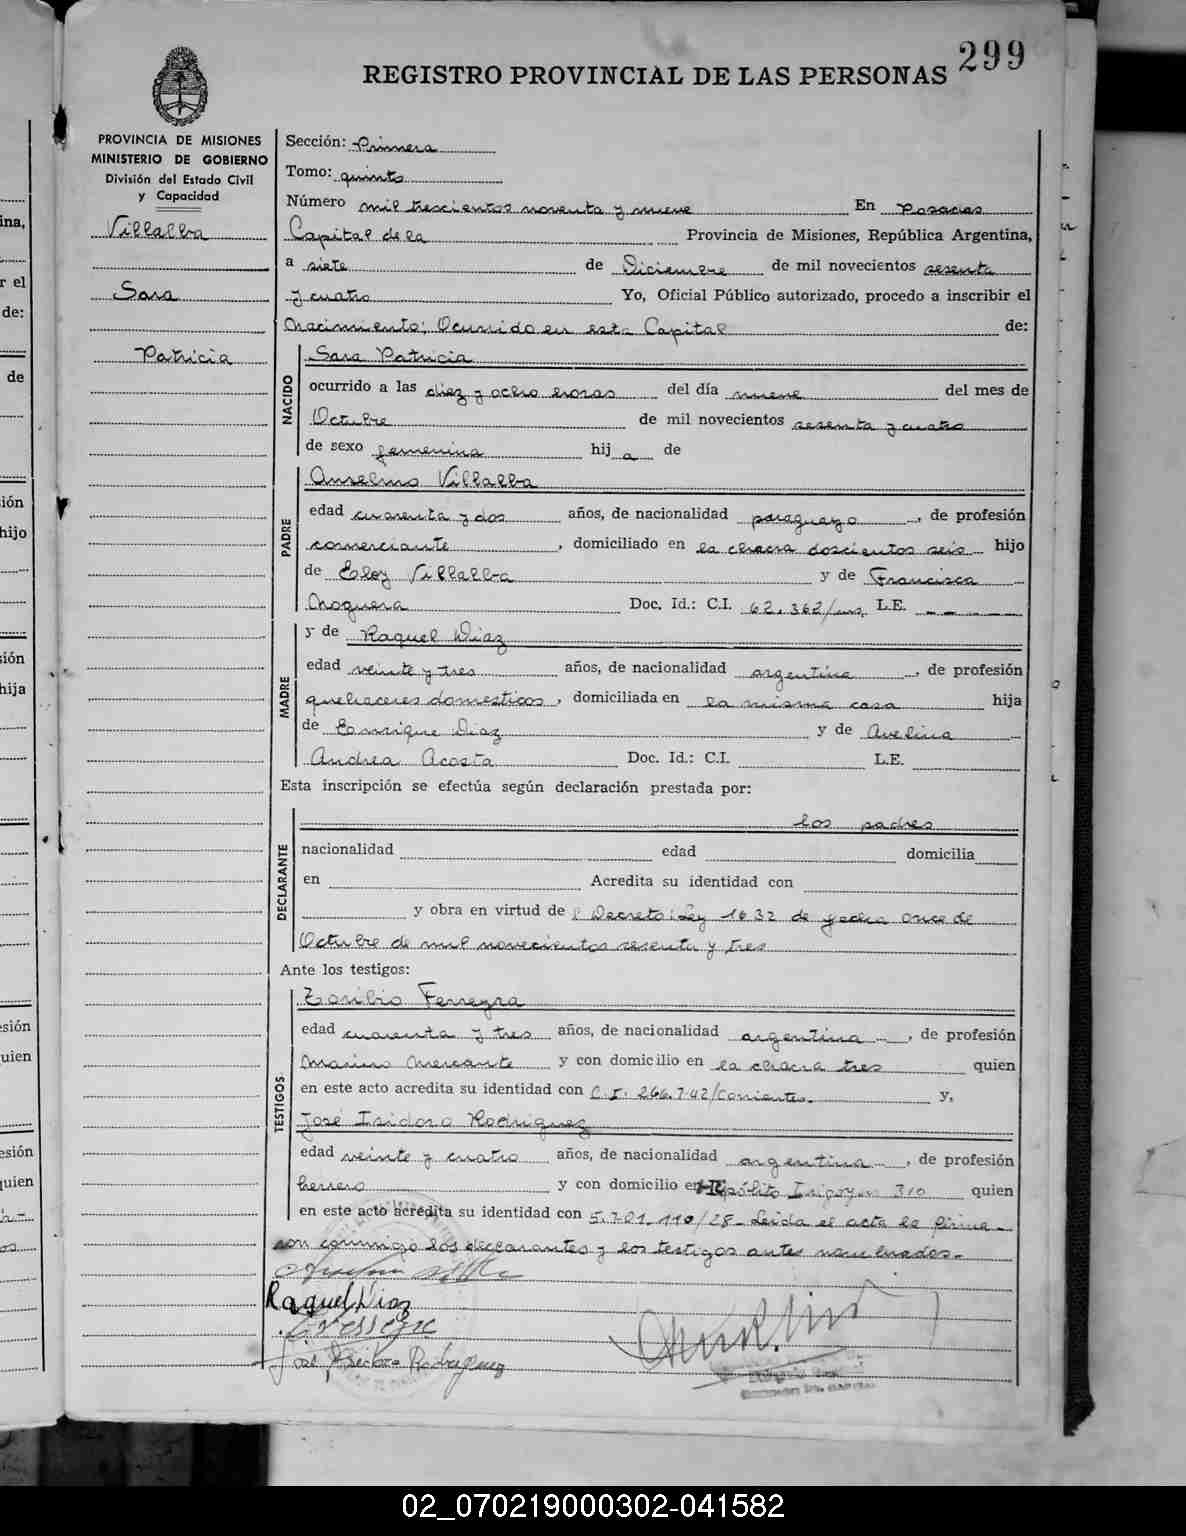 299
REGISTRO PROVINCIAL DE LAS PERSONAS
PROVINCIA DE MISIONES
MINISTERIO DE GOBIERNO
División del Estado Civil
y Capacidad
Villalba
Sara
Patricia
Sección: Primera
Tomo: quinto
Número mil trescientos noventa y nueve En Posadas
Capital de la Provincia de Misiones, República Argentina,
a siete de Diciembre de mil novecientos sesenta
y cuatro Yo, Oficial Público autorizado, procedo a inscribir el
Nacimiento: Ocurrido en esta Capital de:
NACIDO
Sara Patricia
ocurrido a las diez y ocho horas del día nueve del mes de
Octubre de mil novecientos sesenta y cuatro
de sexo femenina hija de
PADRE
Anselmo Villalba
edad cuarenta y dos años, de nacionalidad paraguayo, de profesión
comerciante, domiciliado en la chacra doscientos seis hijo
de Eloy Villalba y de Francisca
Noguera Doc. Id.: C.I. 62.362/ L.E. - - - -
MADRE
y de Raquel Diaz
edad veinte y tres años, de nacionalidad argentina, de profesión
quehaceres domesticos, domiciliada en la misma casa hija
de Enrique Diaz y de Avelina
Andrea Acosta Doc. Id.: C.I. L.E.
Esta inscripción se efectúa según declaración prestada por:
DECLARANTE
los padres
nacionalidad edad domicilia
en Acredita su identidad con
y obra en virtud de l Decreto: Ley 1632 de fecha once de
Octubre de mil novecientos sesenta y tres
Ante los testigos:
TESTIGOS
Toribio Ferreyra
edad cuarenta y tres años, de nacionalidad argentina, de profesión
Marino Mercante y con domicilio en la chacra tres quien
en este acto acredita su identidad con C.I. 266.742/Corrientes. y,
José Isidoro Rodriguez
edad veinte y cuatro años, de nacionalidad argentina, de profesión
herrero y con domicilio en Hipólito Irigoyen 310 quien
en este acto acredita su identidad con 5.701.110/28- Leida el acta la firma-
ron conmigo los declarantes y los testigos antes nombrados-
Raquel Diaz
José Isidoro Rodriguez
ina,
r el
de:
de
sión
hijo
sión
hija
esión
quien
esión
quien
02_070219000302-041582